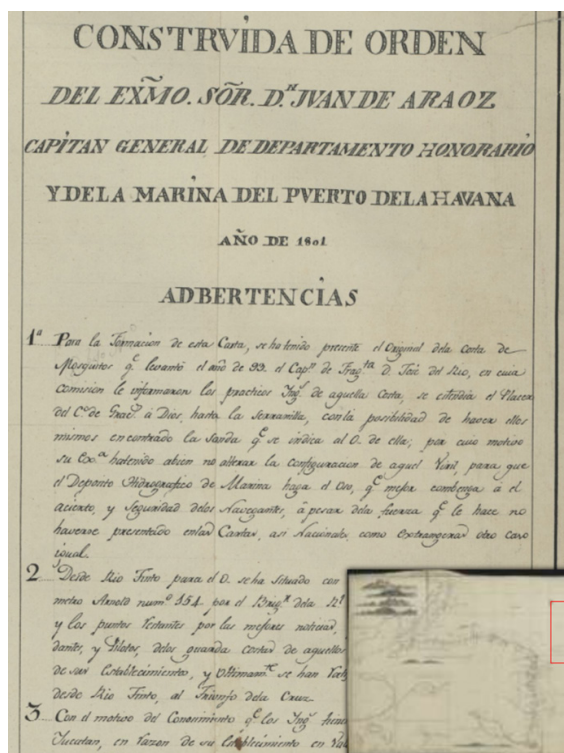 CONSTRVÌDA DE ORDEN
DEL EXM̃O. SOR̃. D.ⁿ JVAN DE ARAOZ
CAPÌTAN GENERAL DE DEPARTAMENTO HONORARÌO
Y DE LA MARÌNA DEL PVERTO DE LA HAVANA
AÑO DE 1801
ADBERTENCÌAS
1ª Para la Formacion de esta Carta, se ha tenido presente el Original dela costa de
Mosquitos q.ᵉ levantó el año de 93, el Cap.ⁿ de Frag.ᵗᵃ D. José del Rio, en cuia
comision le informaron los practicos Ing.ˢ de aquella Costa, se estendia el Placer
del C.º de Grac.ˢ á Dios, hasta la Serranilla, con la posibilidad de haver ellos
mismos encontrado la Sonda q.ᵉ se indica al O. de ella; por cuio motivo
su Ex.ª ha tenido abien no alterar la configuracion de aquel Veril, para que
el Deposito Hidrografico de Marina haga el Uso, q.ᵉ mejor combenga a el
acierto, y Seguridad delos Navegantes, á pesar dela fuerza q.ᵉ le hace no
haverse presentado en las Cartas, asi Nacionales, como Extrangeras otro caso
igual.
2 Desde Rio Tinto para el O. se ha Situado con
metro Arnold num.º 354 por el Brig.ʳ dela R.ˡ
y los puntos restantes por las mejores noticias,
dantes, y Pilotos, delos guarda costas de aquellos
de sus Establecimientos, y Ultimam.ᵗᵉ se han
desde Rio Tinto, al Triunfo dela Cruz
3 Con el motivo del Conocimiento q.ᵉ los Ing.ˢ
Yucatan, en razon de su Establecimiento en